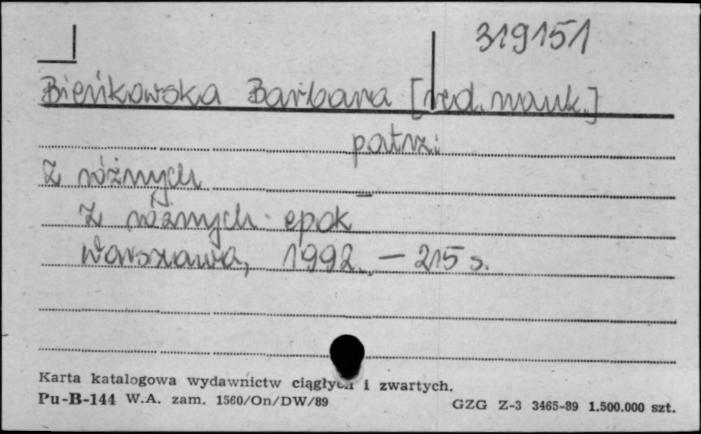 319151
Bieńkowska Barbara [red. nauk.]
patrz:
Z różnych
Z różnych epok
Warszawa, 1992. – 215 s.
Karta katalogowa wydawnictw ciągłych i zwartych.
Pu-B-144 W.A. zam. 1560/On/DW/89
GZG Z-3 3465-89 1.500.000 szt.